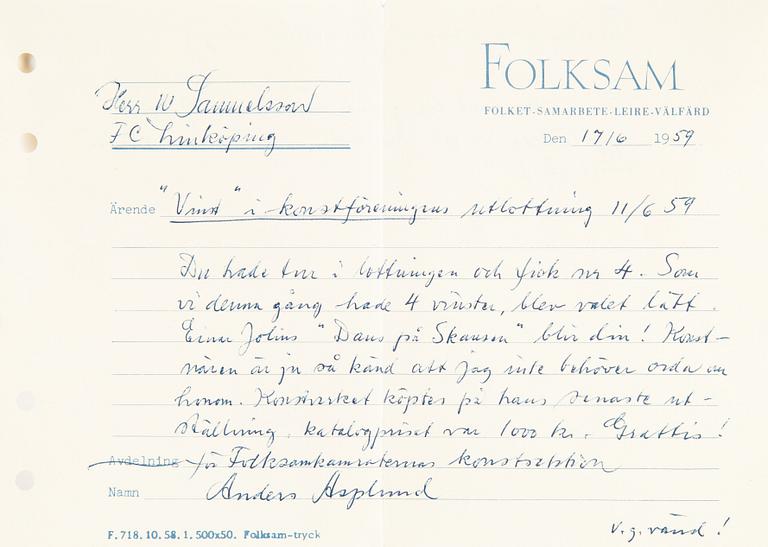 FOLKSAM
FOLKET-SAMARBETE-LEIRE-VÄLFÄRD
Den 17/6 1959
Herr W Samuelsson
FC Linköping
Ärende "Vinst" i konstföreningens utlottning 11/6 59
Du hade tur i lottningen och fick nr 4. Som
vi denna gång hade 4 vinster, blev valet lätt.
Einar Jolins "Dans på Skansen" blir din! Konst-
nären är ju så känd att jag inte behöver orda om
honom. Konstverket köptes på hans senaste ut-
ställning, katalogpriset var 1000 kr. Grattis!
Avdelning för Folksamkamraternas konstsektion
Namn Anders Asplund
F.718.10.58.1.500x50. Folksam-tryck
V.g. vänd!